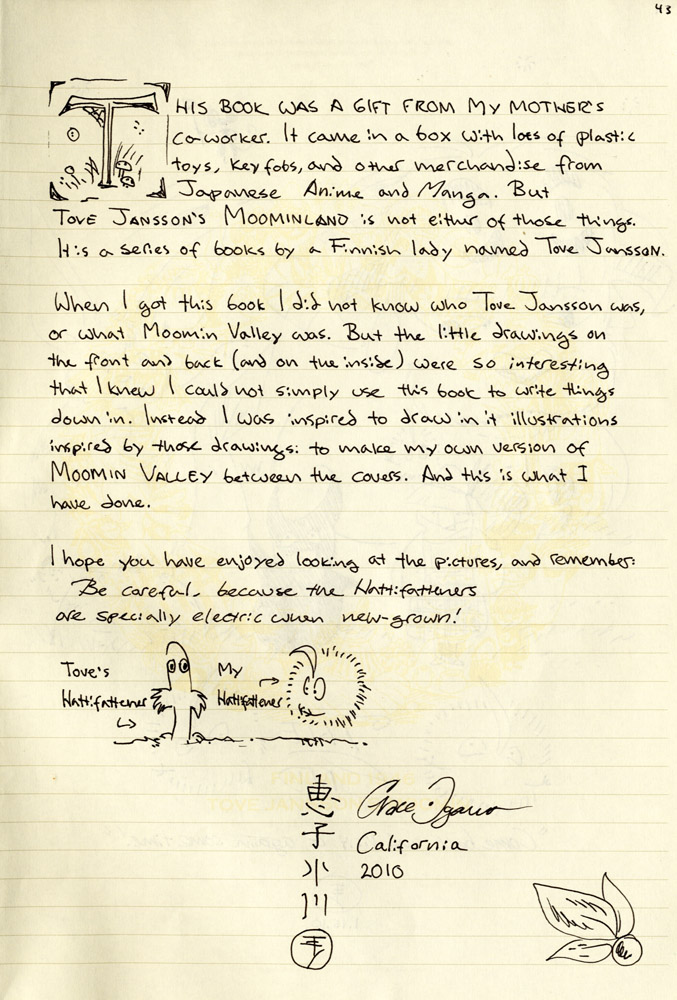 43
THIS BOOK WAS A GIFT FROM MY MOTHER'S
co-worker. It came in a box with lots of plastic
toys, key fobs, and other merchandise from
Japanese Anime and Manga. But
TOVE JANSSON'S MOOMINLAND is not either of those things.
It is a series of books by a Finnish lady named Tove Jansson.
When I got this book I did not know who Tove Jansson was,
or what Moomin Valley was. But the little drawings on
the front and back (and on the inside) were so interesting
that I knew I could not simply use this book to write things
down in. Instead I was inspired to draw in it illustrations
inspired by those drawings: to make my own version of
MOOMIN VALLEY between the covers. And this is what I
have done.
I hope you have enjoyed looking at the pictures, and remember:
Be careful, because the Hattifatteners
are specially electric when new-grown!
Tove's
Hattifattener
My
Hattifattener
恵子小川
Grace Ogawa
California
2010